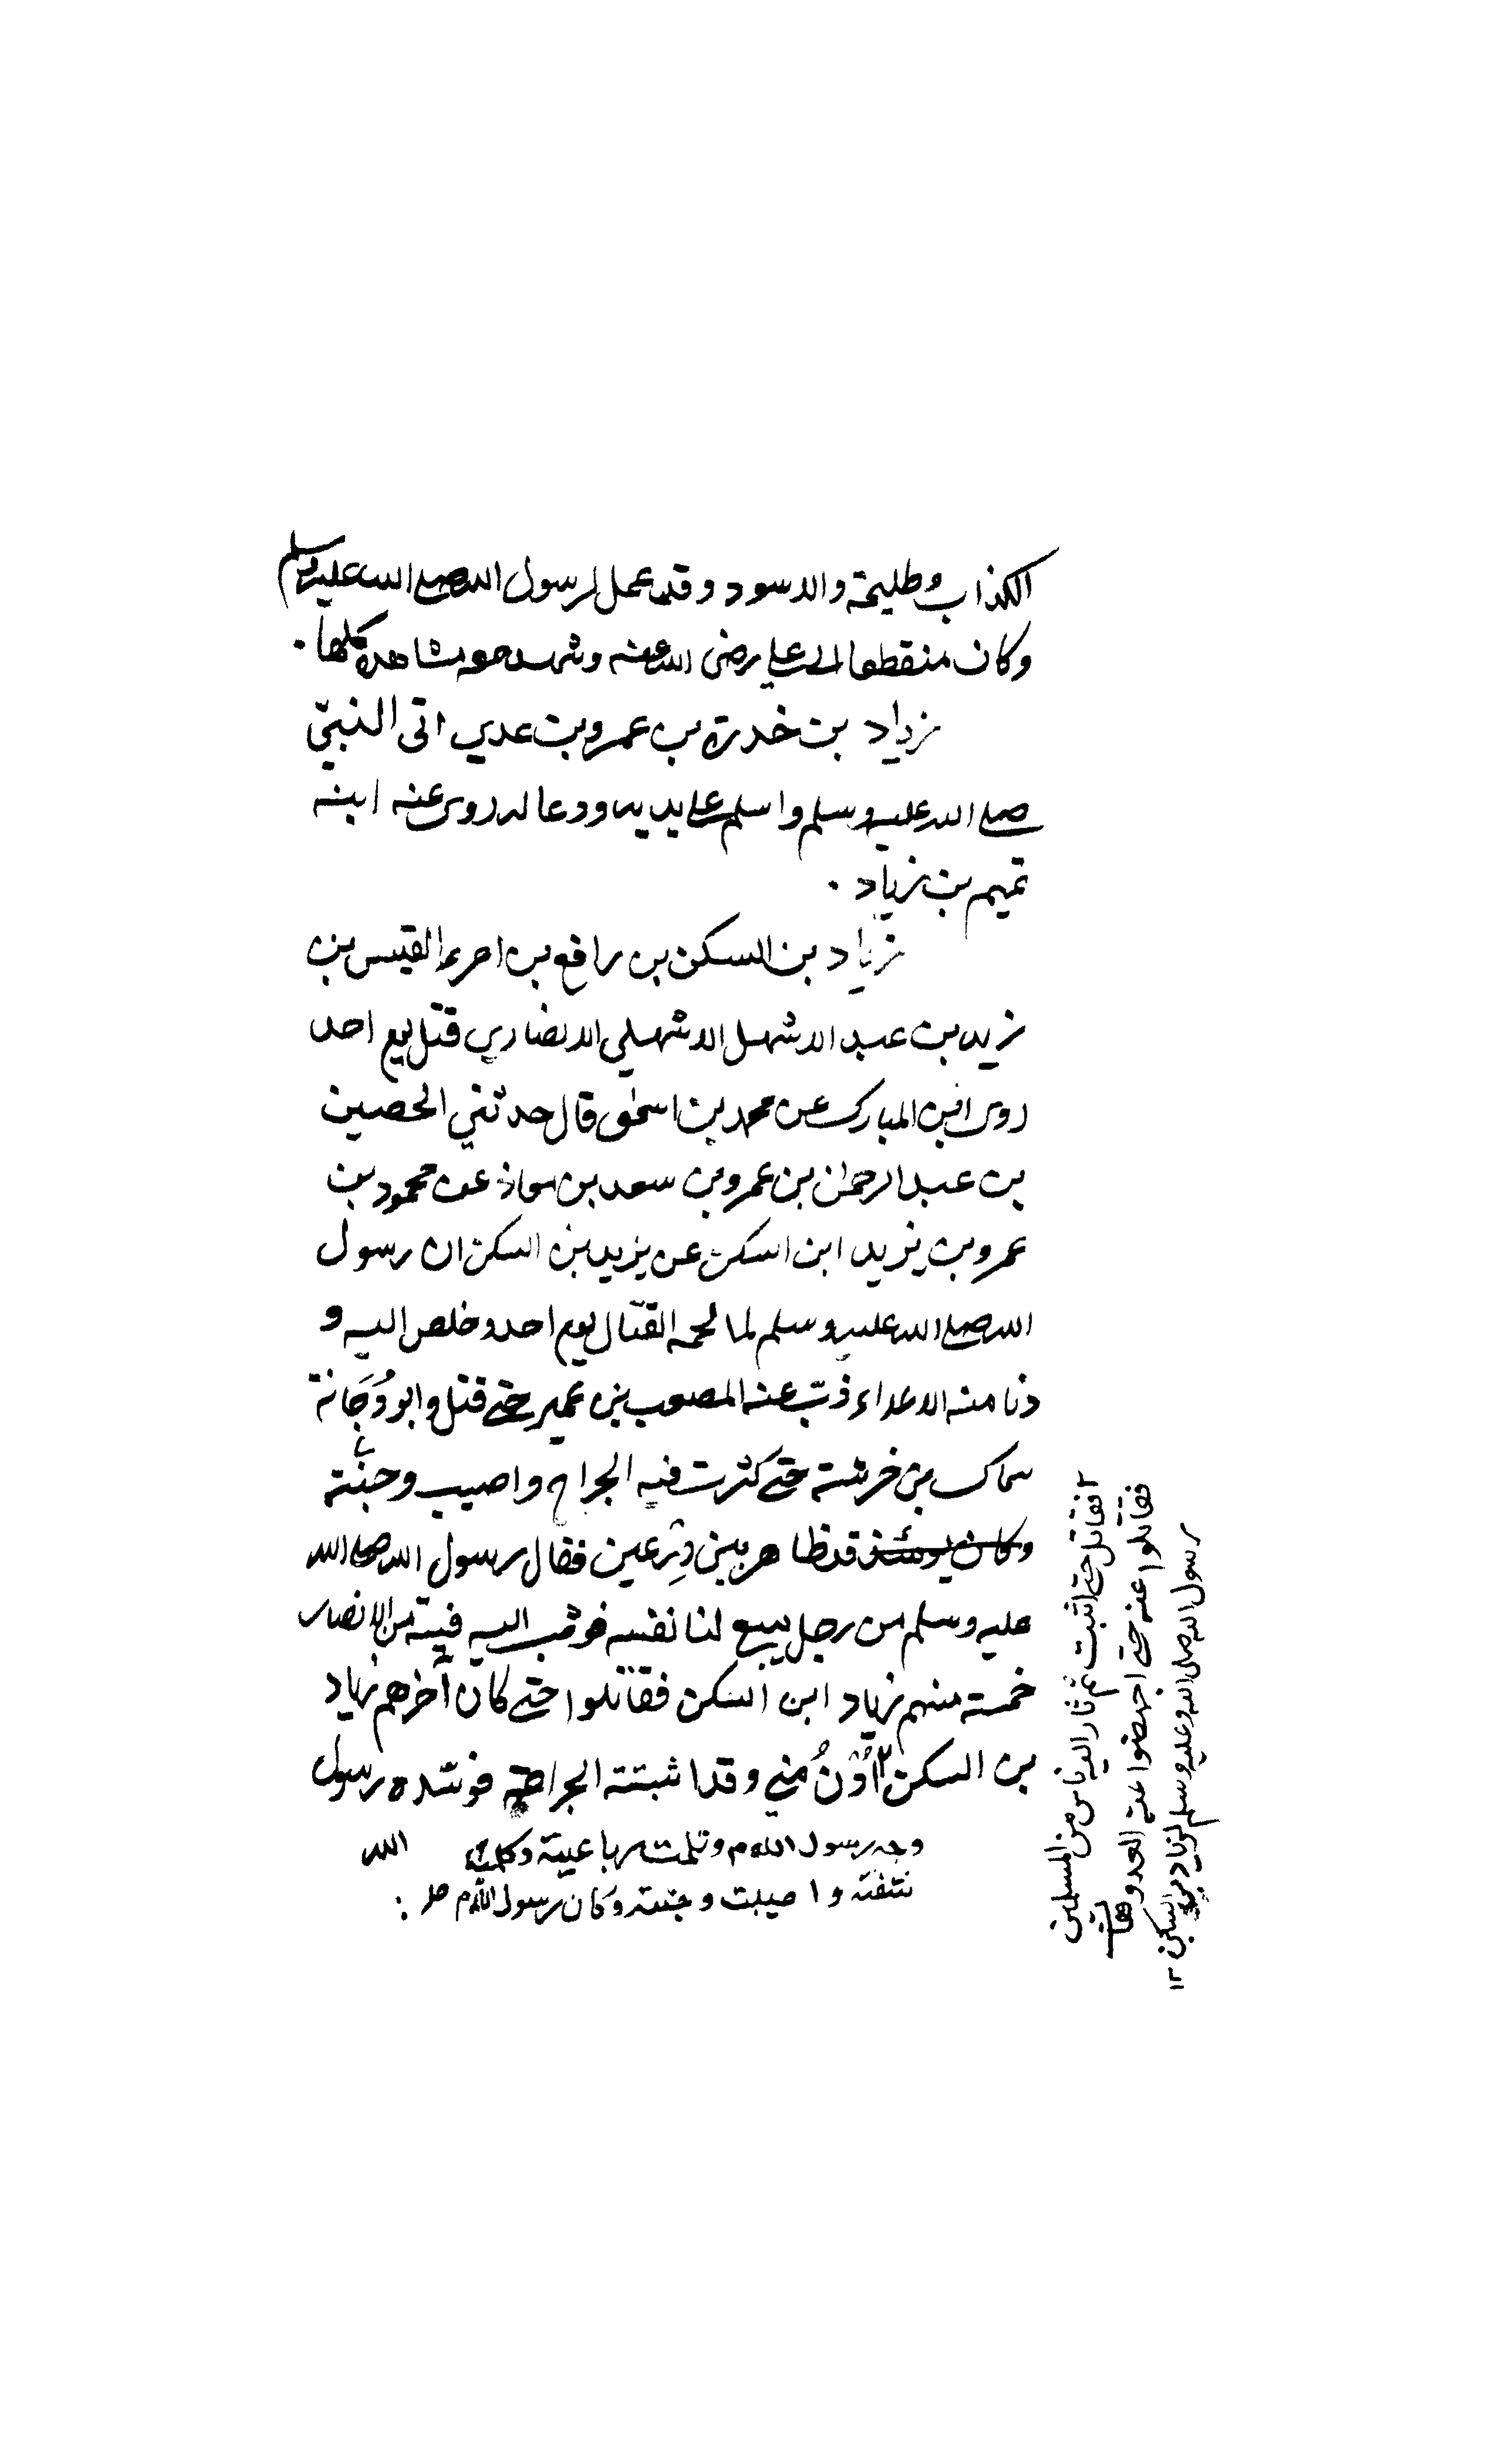 الكذاب وطليحة والاسود وقد عمل لرسول الله صلى الله عليه وسلم
وكان منقطعا الى علي رضى الله عنه وشهد معه مشاهده كلها .
زياد بن خدرة بن عمرو بن عدي اتى النبيّ
صلى الله عليه وسلم واسلم على يديه ودعا له روى عنه ابنه
تميم بن زياد .
زياد بن السكن بن رافع بن امرء القيس بن
زيد بن عبد الاشهل الاشهلي الانصاري قتل يوم احد
روى ابن المبارك عن محمد بن اسحق قال حدثني الحصين
بن عبد الرحمن بن عمرو بن سعد بن معاذ عن محمود بن
عمرو بن يزيد ابن السكن عن يزيد بن السكن ان رسول
الله صلى الله عليه وسلم لما لحمه القتال يوم احد وخلص اليه و
دنا منه الاعداء ذبّ عنه المصعب بن عمير حتى قتل وابو دُجَانة
سماك بن خرشة حتى كثرت فيه الجراح واصيب وجنته
وكان يومئذ قد ظاهر بين دِرعين فقال رسول الله صلى الله
عليه وسلم من رجل يبيع لنا نفسه فوثب اليه فيتة من الانصار
خمسة منهم زياد ابن السكن فقاتلوا حتى كان آخرهم زياد
بن السكن ٢ اُدْنُ مني وقد اثبتته الجراحة فوسّده رسول
الله
وجه رسول الله م وثلمت رباعيته وكلمت
شفته واصيبت وجنته وكان رسول الله م صلو :
٢ فقاتل حتى اثبت ثم ثار اليه ناس من المسلمين
فقاتلوا عنه حتى اجهضوا عنه العدو فقال
رسول الله صلى الله عليه وسلم لزياد بن السكن ١٢